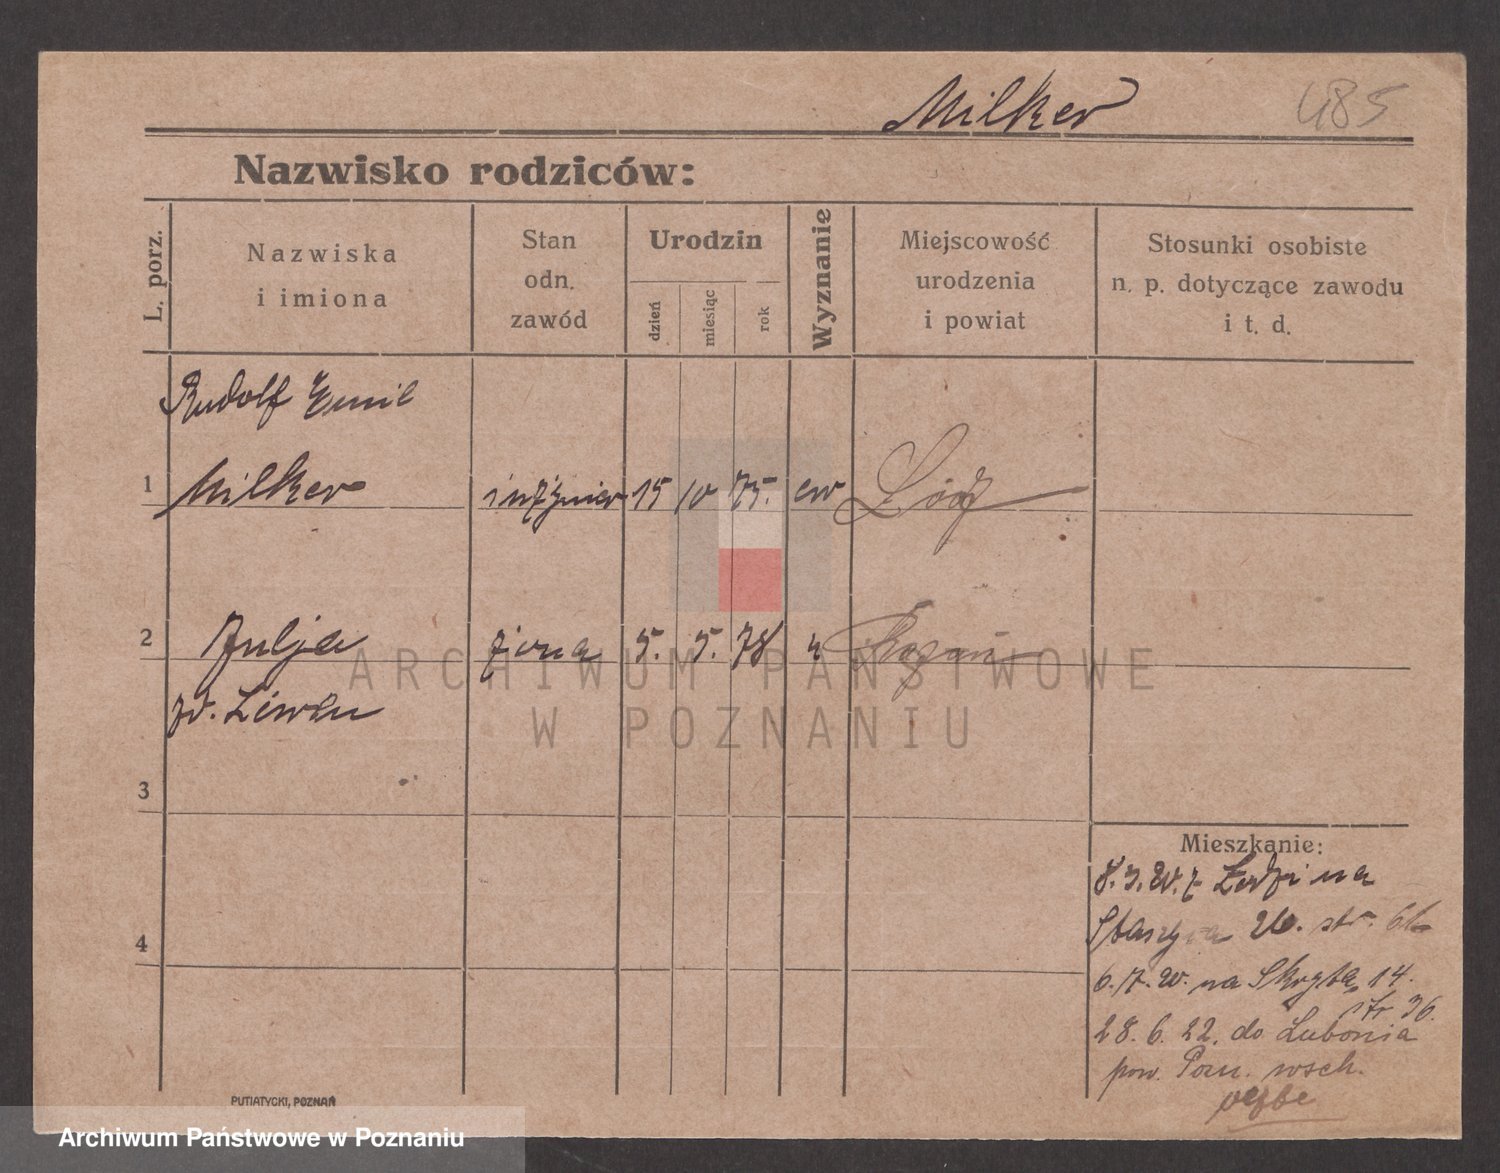 Milker 485
Nazwisko rodziców:
L. porz.
Nazwiska
i imiona
Stan
odn.
zawód
Urodzin
dzień
miesiąc
rok
Wyznanie
Miejscowość
urodzenia
i powiat
Stosunki osobiste
n. p. dotyczące zawodu
i t. d.
Rudolf Emil
1 Milker inżynier 15 10 75. ew Łódź
2 Julja żona 5. 5. 78 "
zd.
3
4
Mieszkanie:
8. 3. 20. z Łodzi na
26. str.
6. 7. 20. na Skrytą 14.
str 36.
28. 6. 22. do Lubonia
pow. Pozn. wsch.
PUTIATYCKI, POZNAŃ
ARCHIWUM PAŃSTWOWE
W POZNANIU
Archiwum Państwowe w Poznaniu